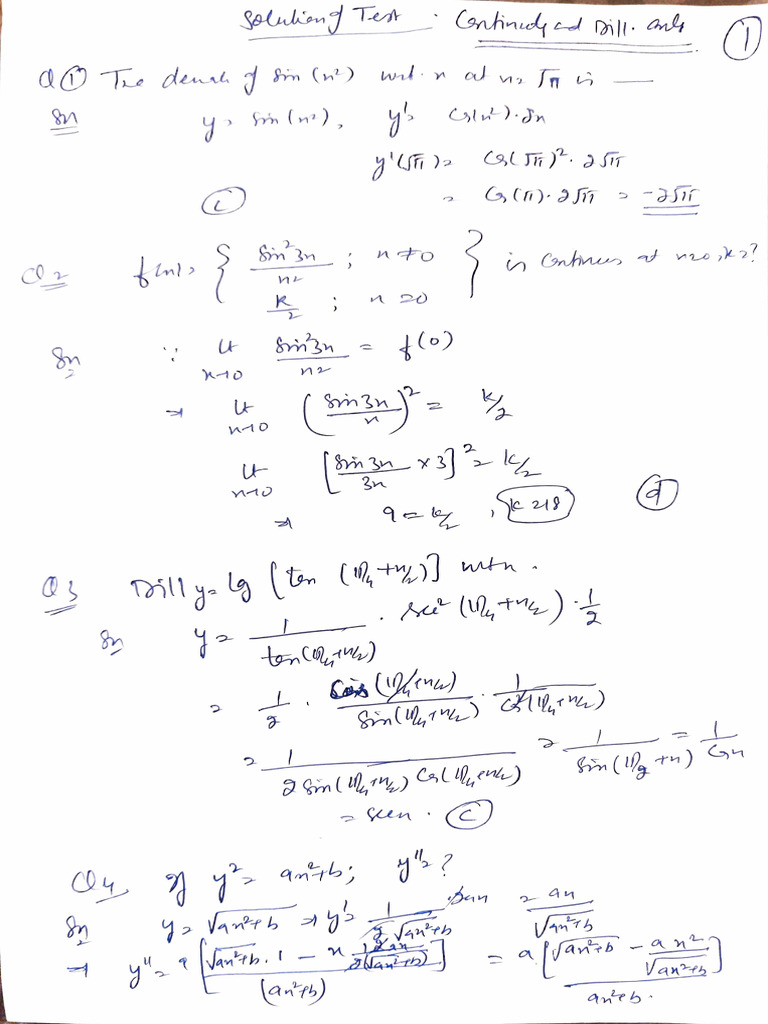 Solution of Test : Continuity and Diff. only ①
Q① The derivative of sin(x²) w.r.t. x at x = √π is —
Sn y = sin(x²), y' = Cos(x²)·2x
y'(√π) = Cos(√π)²·2√π
= Cos(π)·2√π = -2√π
Ⓒ
Q2 f(x) = { sin²3x/x² ; x ≠ 0
k/2 ; x = 0 } is continuous at x=0, k=?
Sn ∵ Lt x→0 sin²3x/x² = f(0)
⇒ Lt x→0 (sin3x/x)² = k/2
Lt x→0 [sin3x/3x ×3]² = k/2
⇒ 9 = k/2, k=18 ⓓ
Q3 Diff y = log [tan (π/4 + x/2)] w.r.t x.
Sn y = 1/tan(π/4 + x/2) · sec²(π/4 + x/2)·1/2
= 1/2 · Cos(π/4 + x/2)/Sin(π/4 + x/2) · 1/Cos²(π/4 + x/2)
= 1/2 Sin(π/4 + x/2) Cos(π/4 + x/2) = 1/Sin(π/2 + x) = 1/Cosx
= secx. Ⓒ
Q4 If y² = ax²+b; y'' = ?
Sn y = √ax²+b ⇒ y' = 1/2√ax²+b · 2ax = ax/√ax²+b
⇒ y'' = a[√ax²+b · 1 - x 1·2ax/2(√ax²+b)]/(ax²+b) = a[√ax²+b - ax²/√ax²+b]/ax²+b.